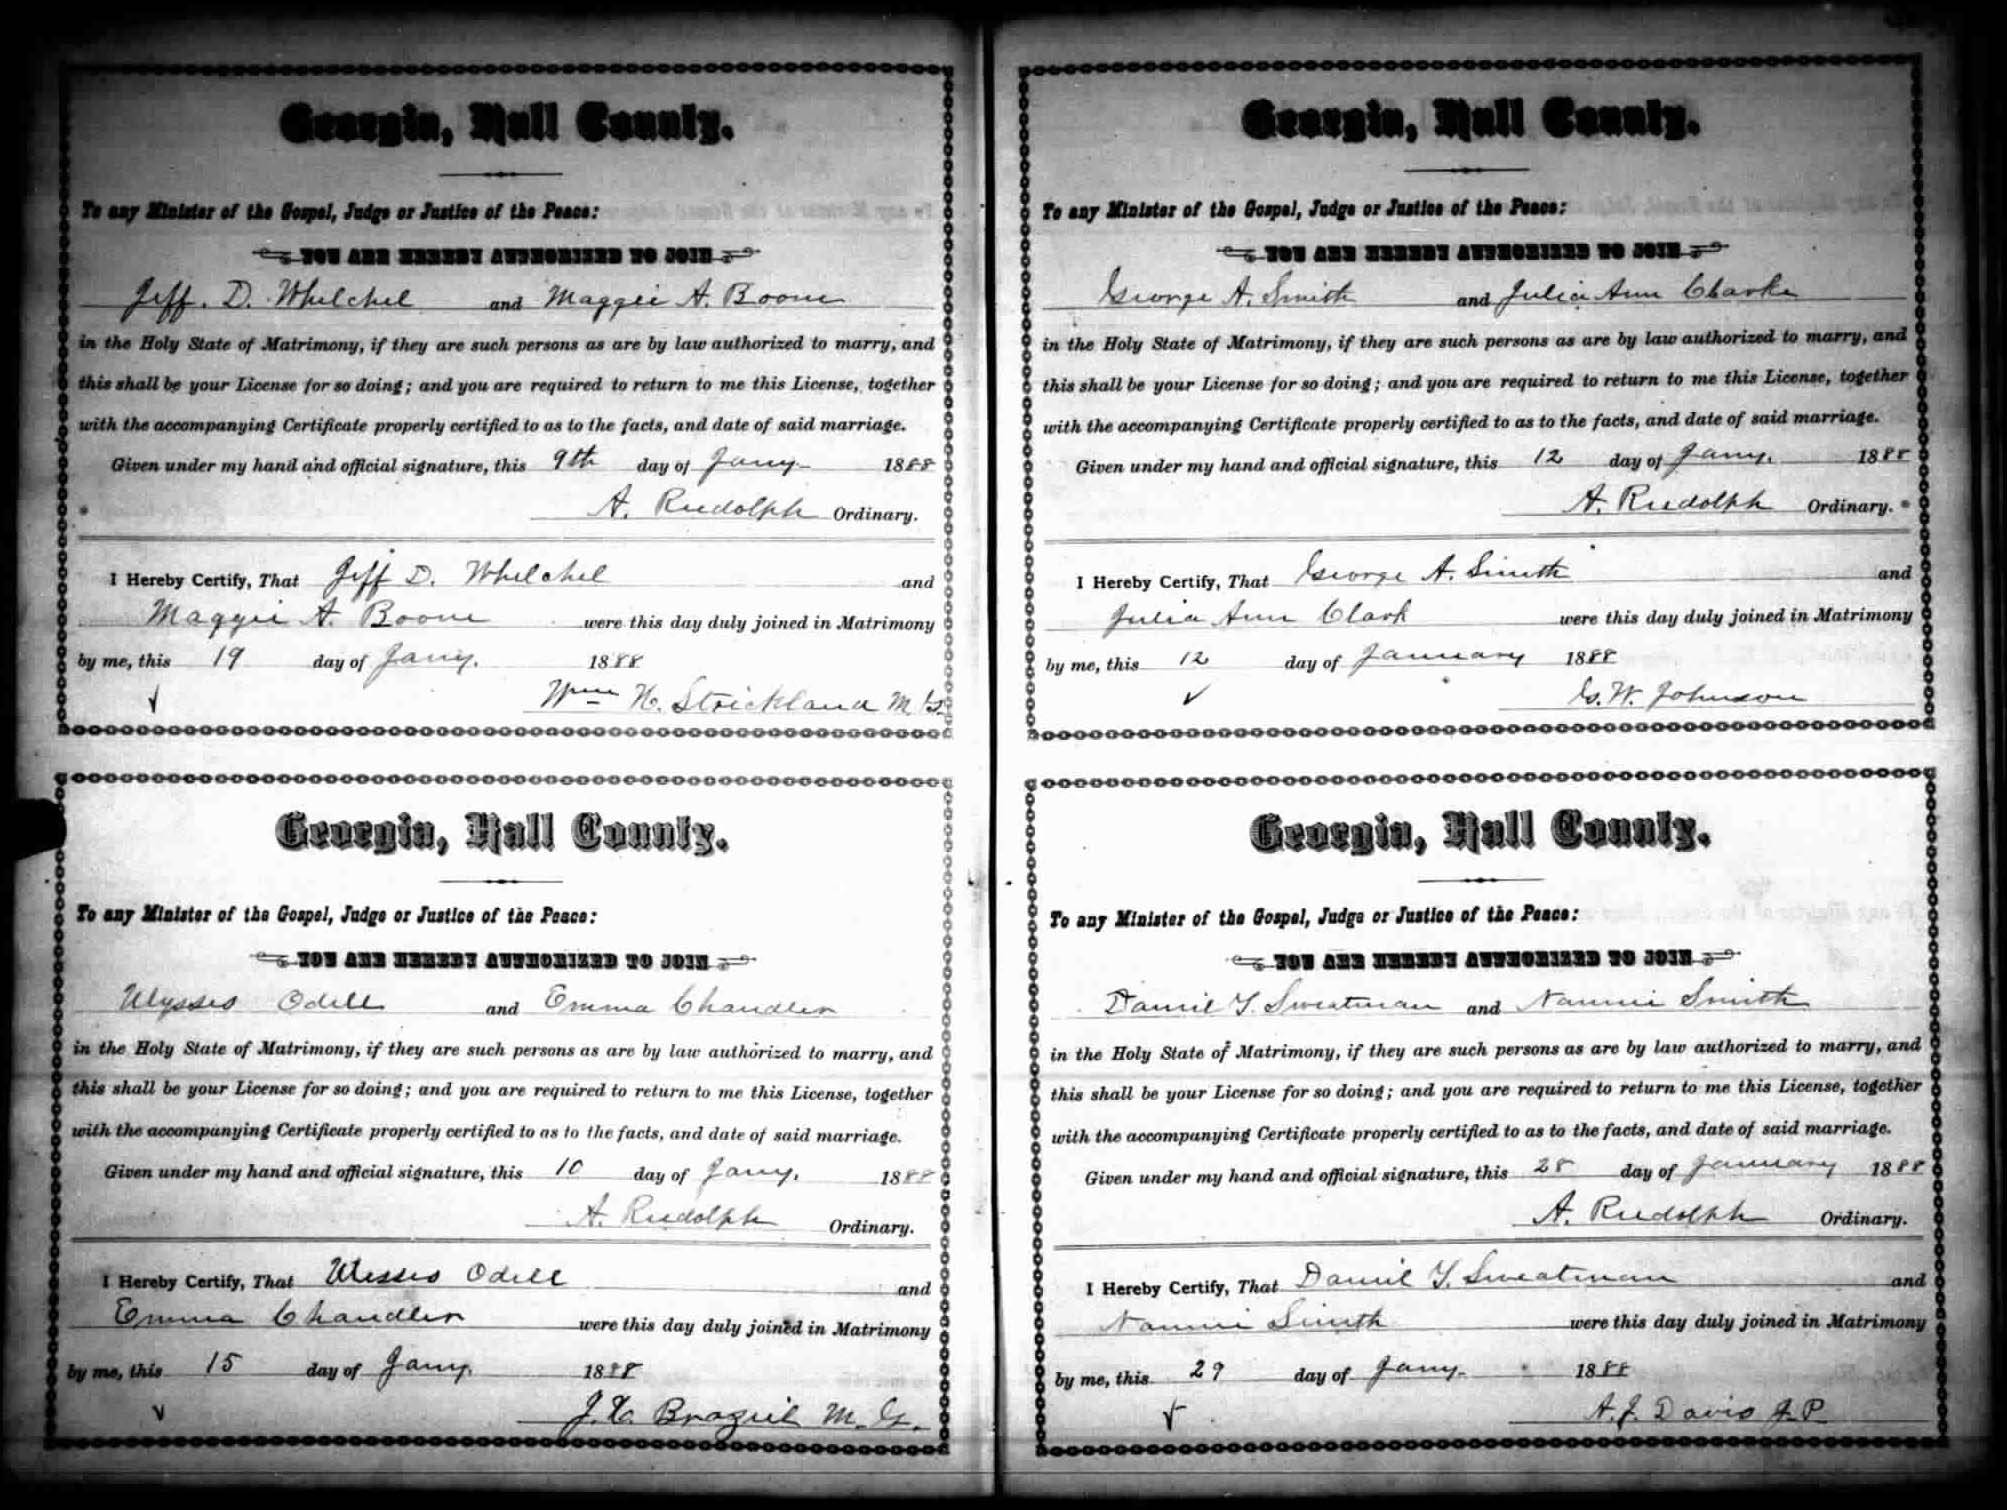 Georgia, Hall County.
To any Minister of the Gospel, Judge or Justice of the Peace:
YOU ARE HEREBY AUTHORIZED TO JOIN
Jeff. D. Whelchel and Maggie A. Boone
in the Holy State of Matrimony, if they are such persons as are by law authorized to marry, and
this shall be your License for so doing; and you are required to return to me this License, together
with the accompanying Certificate properly certified to as to the facts, and date of said marriage.
Given under my hand and official signature, this 9th day of Jany. 1888
A. Rudolph Ordinary.
I Hereby Certify, That Jeff D. Whelchel and
Maggie A. Boone were this day duly joined in Matrimony
by me, this 19 day of Jany. 1888
Wm H. Strickland M G.
Georgia, Hall County.
To any Minister of the Gospel, Judge or Justice of the Peace:
YOU ARE HEREBY AUTHORIZED TO JOIN
Ulysses Odell and Emma Chandler
in the Holy State of Matrimony, if they are such persons as are by law authorized to marry, and
this shall be your License for so doing; and you are required to return to me this License, together
with the accompanying Certificate properly certified to as to the facts, and date of said marriage.
Given under my hand and official signature, this 10 day of Jany. 1888
A. Rudolph Ordinary.
I Hereby Certify, That Ulesses Odell and
Emma Chandler were this day duly joined in Matrimony
by me, this 15 day of Jany. 1888
Braziel M. G.
Georgia, Hall County.
To any Minister of the Gospel, Judge or Justice of the Peace:
YOU ARE HEREBY AUTHORIZED TO JOIN
George A. Smith and Julia Ann Clarke
in the Holy State of Matrimony, if they are such persons as are by law authorized to marry, and
this shall be your License for so doing; and you are required to return to me this License, together
with the accompanying Certificate properly certified to as to the facts, and date of said marriage.
Given under my hand and official signature, this 12 day of Jany. 1888
A. Rudolph Ordinary.
I Hereby Certify, That George A. Smith and
Julia Ann Clark were this day duly joined in Matrimony
by me, this 12 day of January 1888
G. W. Johnson
Georgia, Hall County.
To any Minister of the Gospel, Judge or Justice of the Peace:
YOU ARE HEREBY AUTHORIZED TO JOIN
Daniel Y. Sweatman and Nannie Smith
in the Holy State of Matrimony, if they are such persons as are by law authorized to marry, and
this shall be your License for so doing; and you are required to return to me this License, together
with the accompanying Certificate properly certified to as to the facts, and date of said marriage.
Given under my hand and official signature, this 28 day of January 1888
A. Rudolph Ordinary.
I Hereby Certify, That Daniel Y. Sweatman and
Nannie Smith were this day duly joined in Matrimony
by me, this 29 day of Jany. 1888
A. J. Davis J. P.